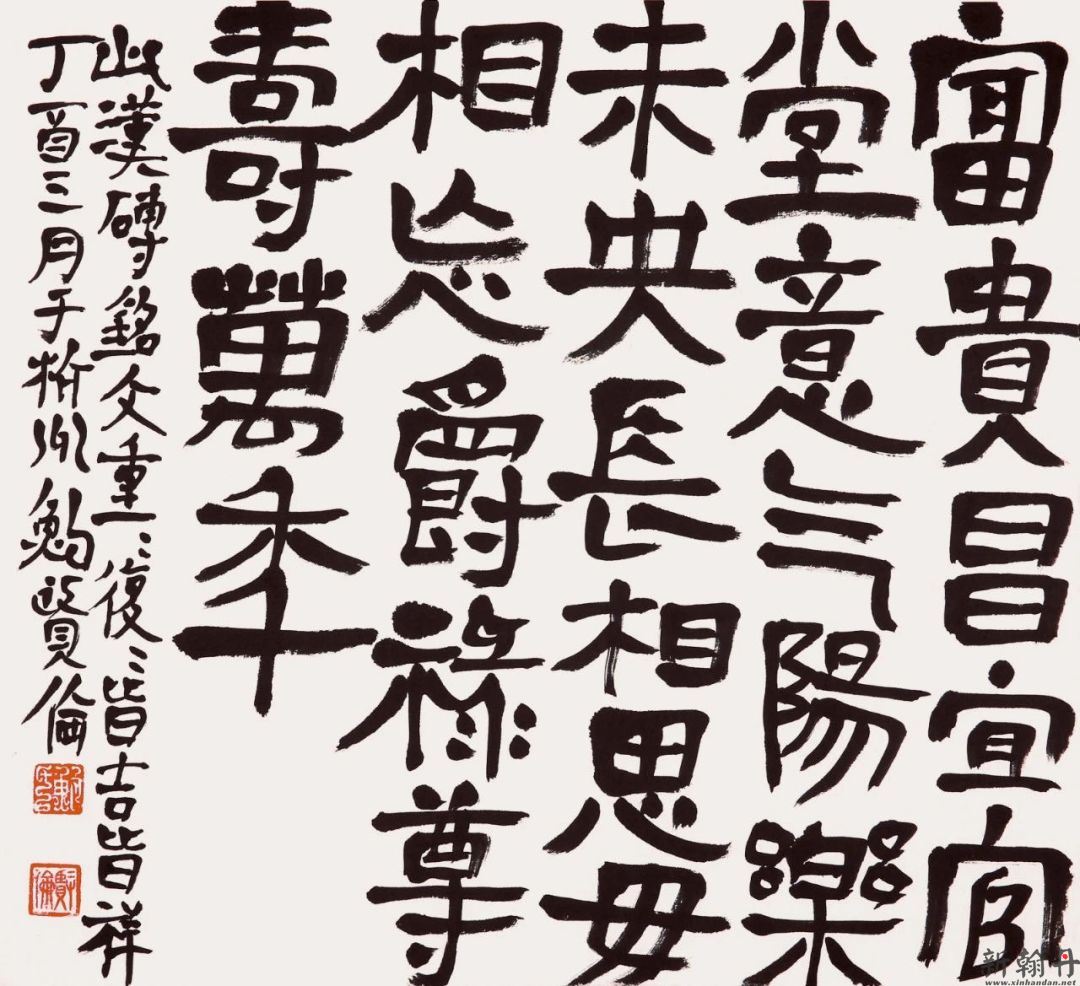 富貴昌宜官
堂意气陽樂
未央長相思毋
相忘爵祿尊
壽萬年
此漢磚銘文重〻復〻皆吉皆祥
丁酉三月于杭州鮑賢倫
新翰丹
www.xinhandan.net